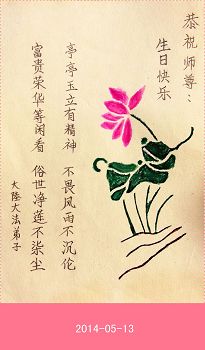 恭祝师尊：
生日快乐
亭亭玉立有精神 不畏风雨不沉伦
富贵荣华等闲看 俗世净莲不柒尘
大陆大法弟子
2014-05-13